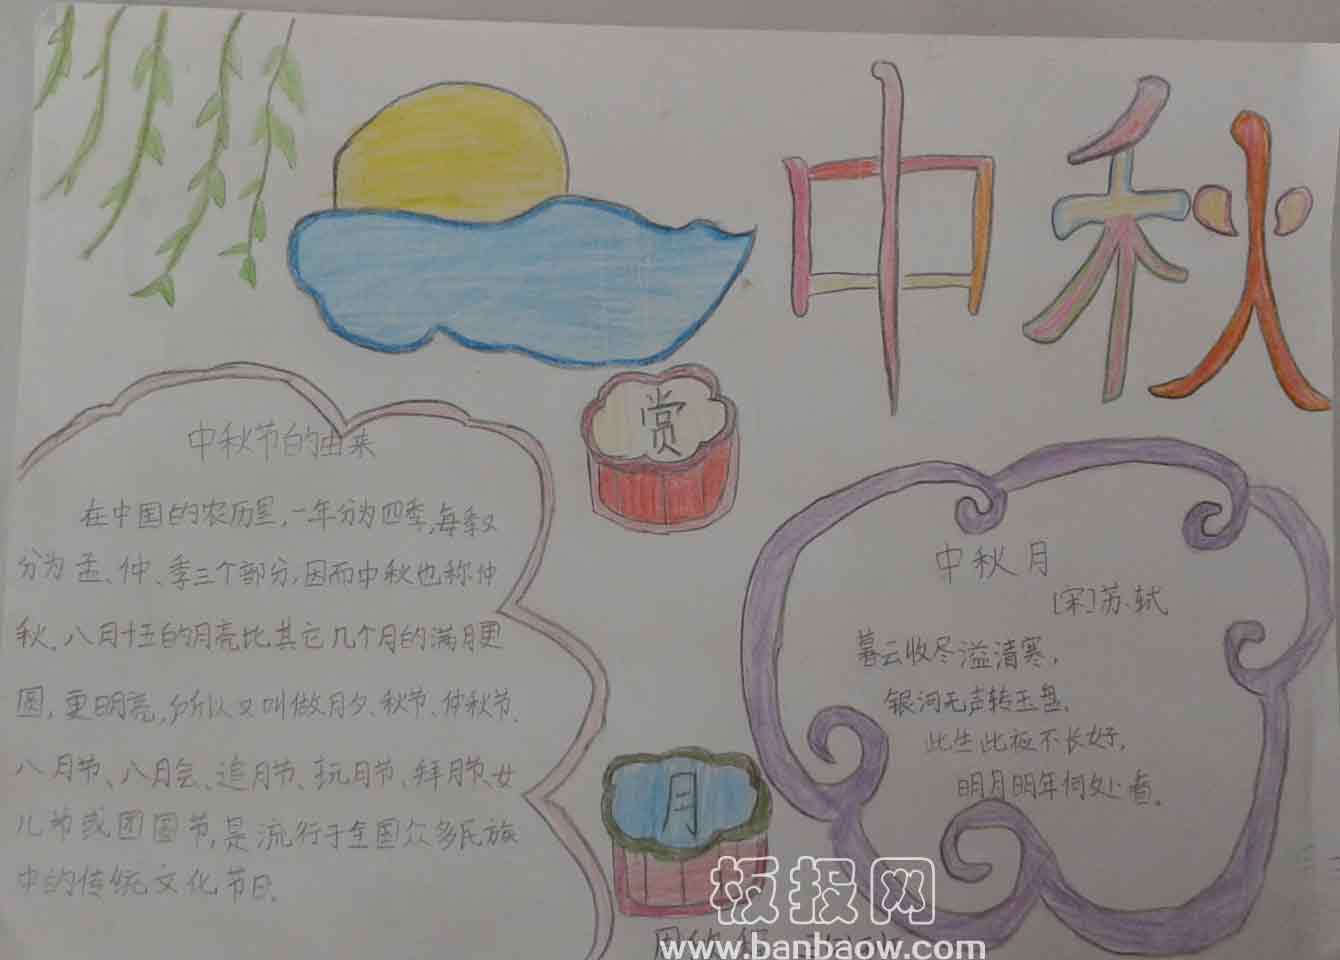 中秋
中秋节的由来
在中国的农历里,一年分为四季,每季又
分为孟、仲、季三个部分,因而中秋也称仲
秋。八月十五的月亮比其它几个月的满月更
圆,更明亮,所以又叫做月夕、秋节、仲秋节、
八月节、八月会、追月节、玩月节、拜月节、女
儿节或团圆节,是流行于全国众多民族
中的传统文化节日。
赏
月
中秋月
[宋]苏轼
暮云收尽溢清寒,
银河无声转玉盘。
此生此夜不长好,
明月明年何处看。
板报网
www.banbaow.com